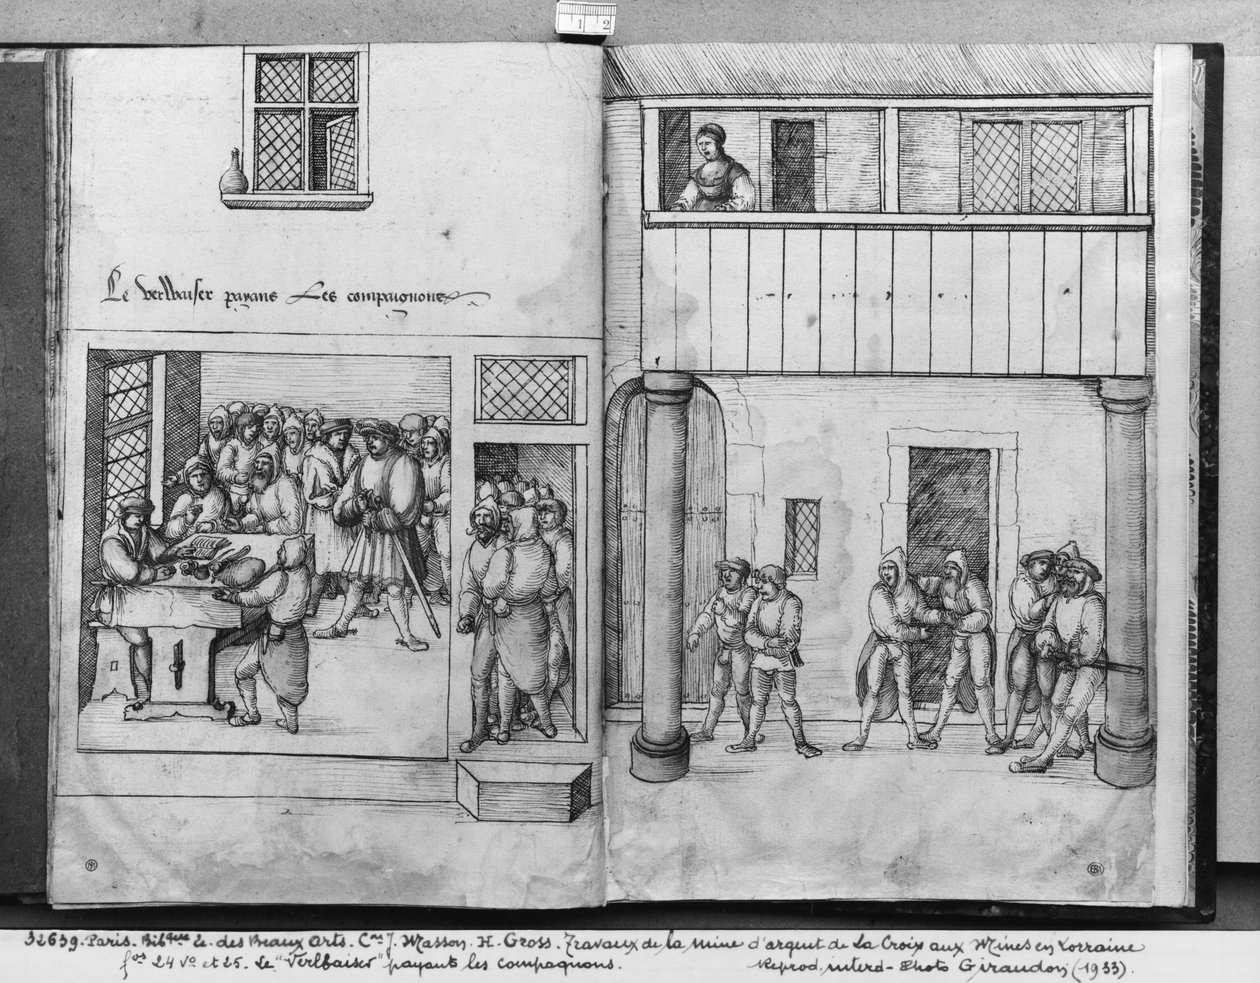 1 2
Le verwaiser payans Les compaignons
32639. Paris. Bibque E. des Beaux Arts. Con J. Masson. H. Gross. Travaux de la mine d'argent de La Croix aux Mines en Lorraine
fos 24 Vo et 25. Le "Verlbaiser" payant les compagnons. Reprod. interd - Photo Giraudon (1933).